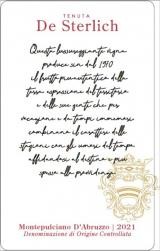 TENUTA
De Sterlich
Questa lussureggiante vigna
produce sin dal 1970
il frutto più autentico della
terra espressione del territorio
e delle sue gente che per
vocazione e da tempo immemore,
combinano il carattere delle
stagioni con gli umori del tempo
affidandosi al destino e più
spesso alla provvidenza
Montepulciano D'Abruzzo | 2021
Denominazione di Origine Controllata